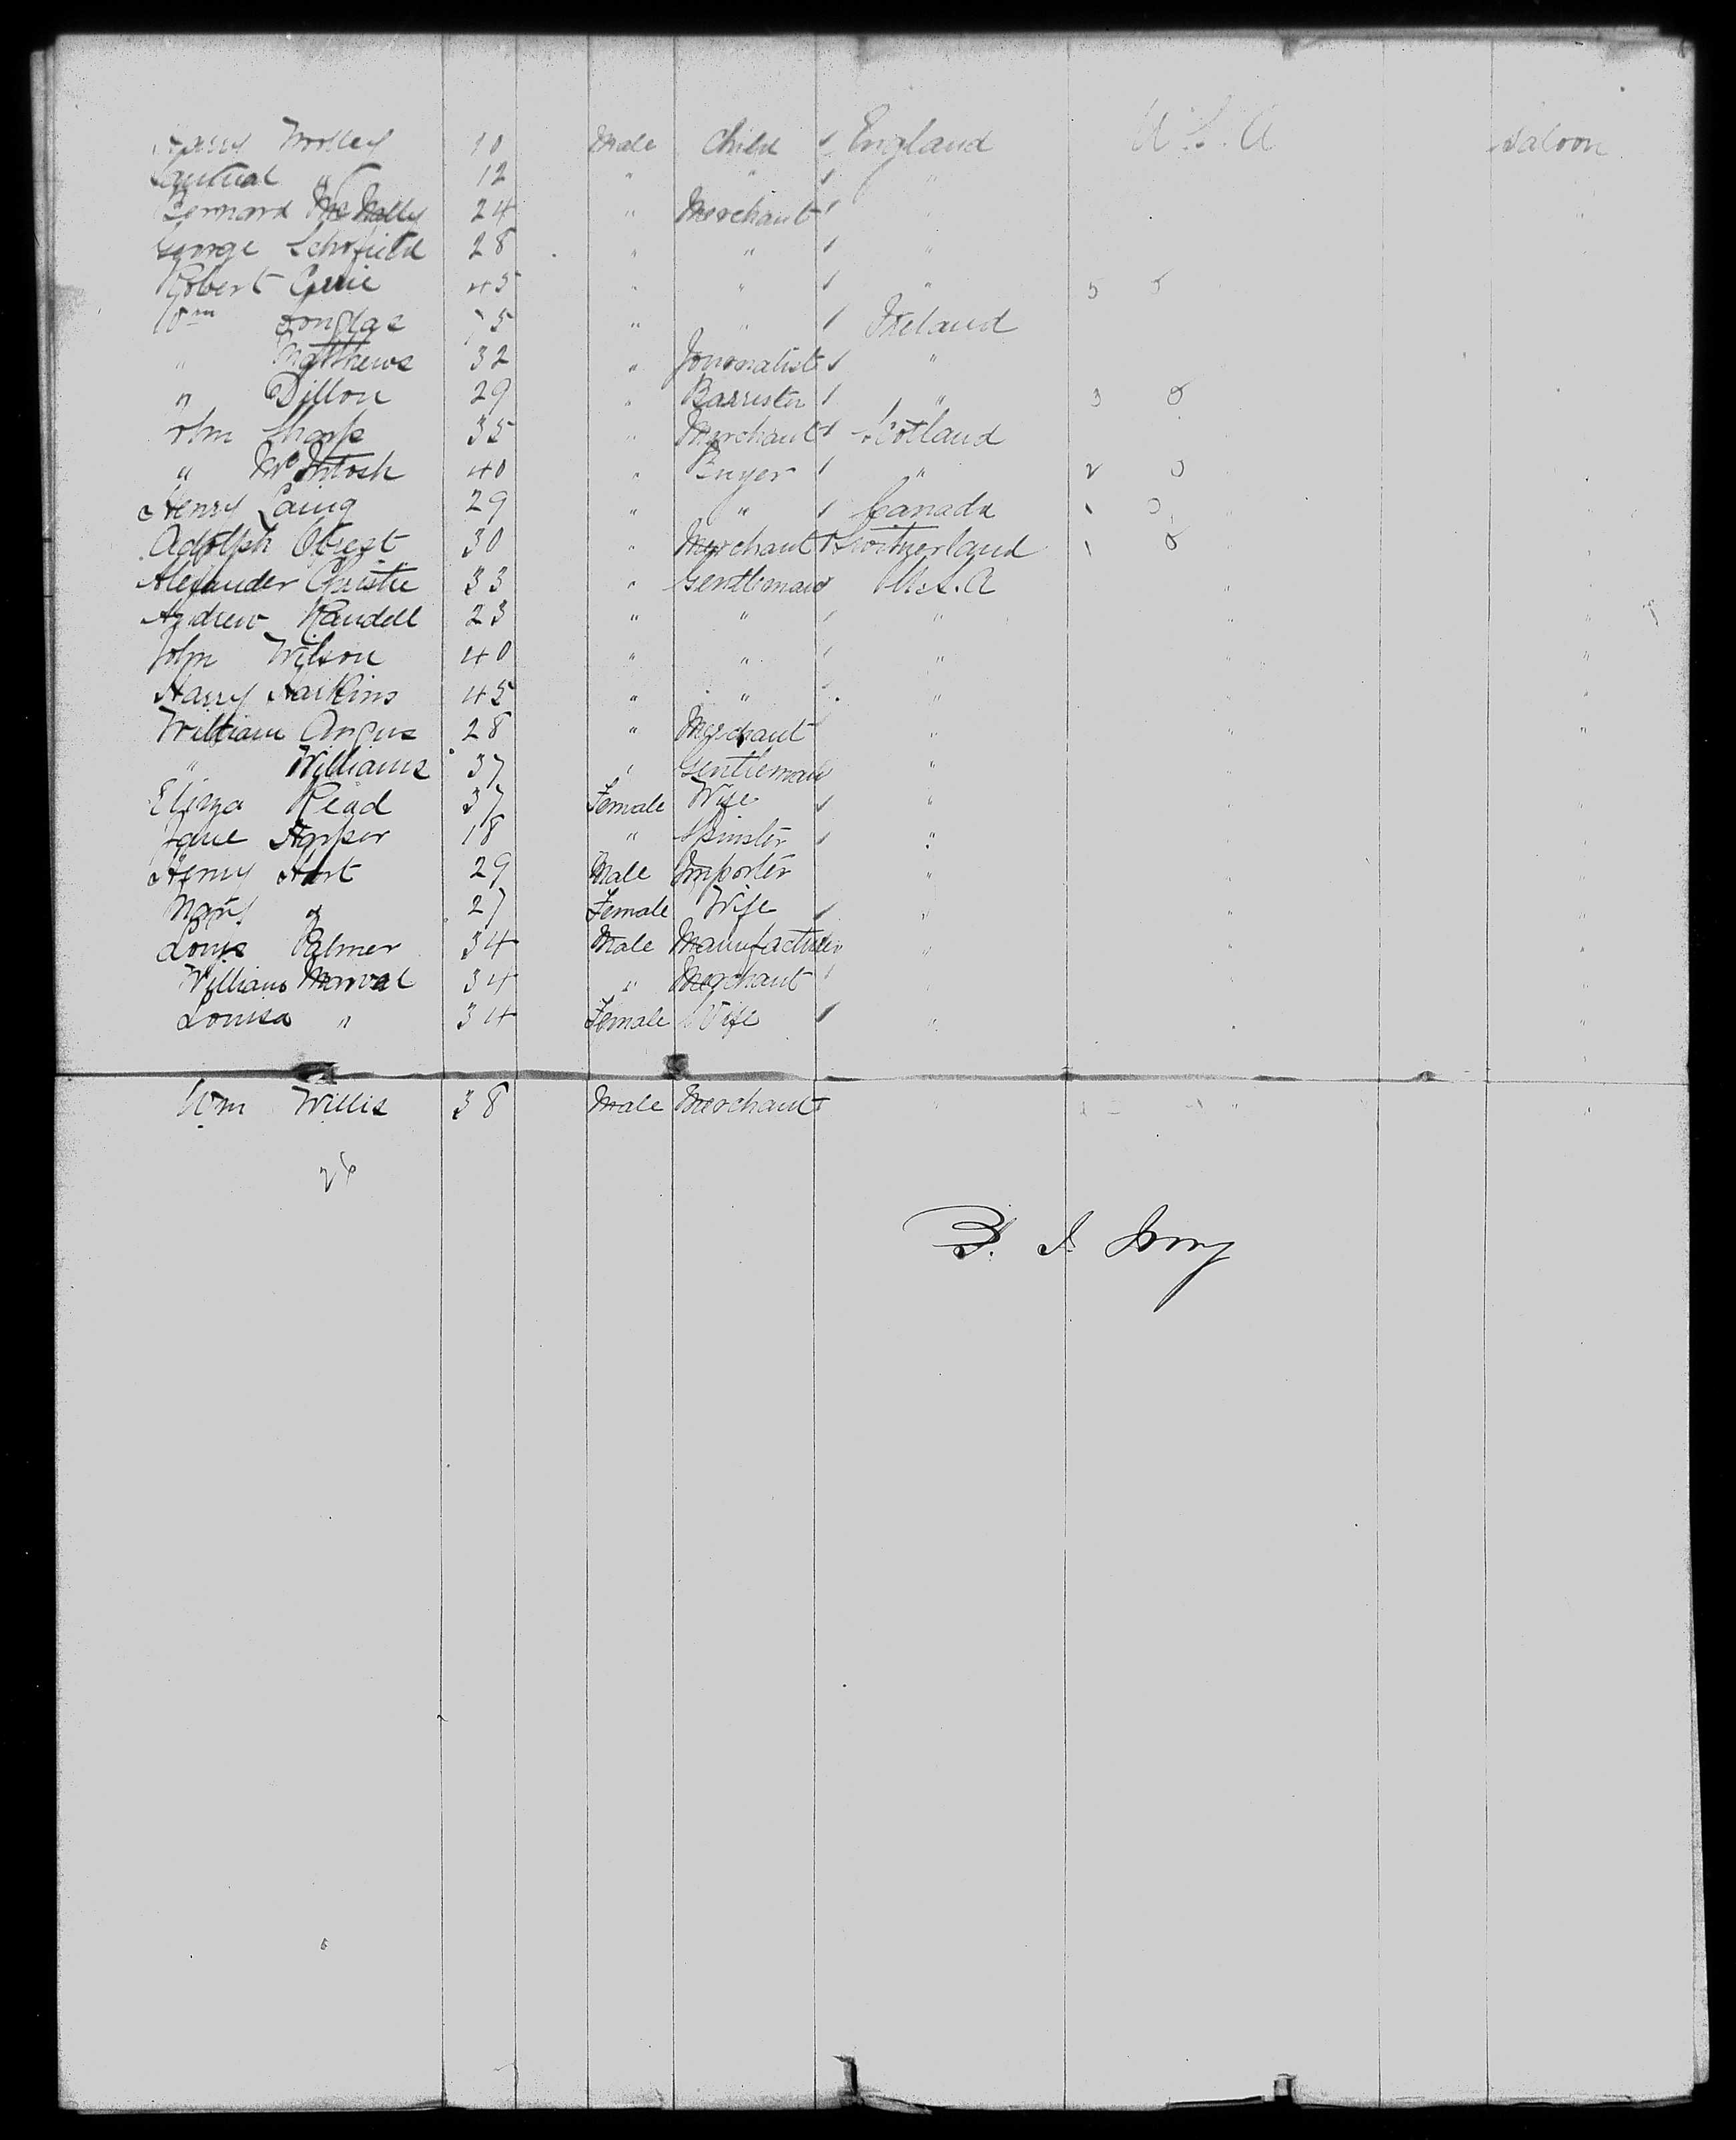 Harry Morley 10 Male Child / England U.S.A Saloon
Samual " 12 " " / "
Bernard McNally 24 " Merchant / "
George Schofield 28 " " / "
Robert 45 " " / "
Wm Douglas 75 " " / Ireland
" Matthews 32 " Journalist / "
" Dillon 29 " Barrister / " 3 0
John Sharp 35 " Merchant / Scotland
" McIntosh 40 " Buyer / " 2 0
Henry Laing 29 " " / Canada 1 0
Adolph Obrist 30 " Merchant / Switzerland 1 0
Alexander Christie 33 " Gentleman U.S.A "
Andrew Randell 23 " " / " " "
John Wilson 40 " " / " " "
Harry Harkins 45 " " / " " "
William Angus 28 " Merchant / " " "
" Williams 37 " Gentleman "
Eliza Read 37 Female Wife / " " "
Jane Harper 18 " Spinster / " " "
Henry Hart 29 Male Importer " " "
Mary " 27 Female Wife / " " "
Louis Palmer 34 Male Manufacturer " " "
William Marval 34 " Merchant / " " "
Louisa " 34 Female Wife / " " "
Wm Willis 38 Male Merchant " " "
26